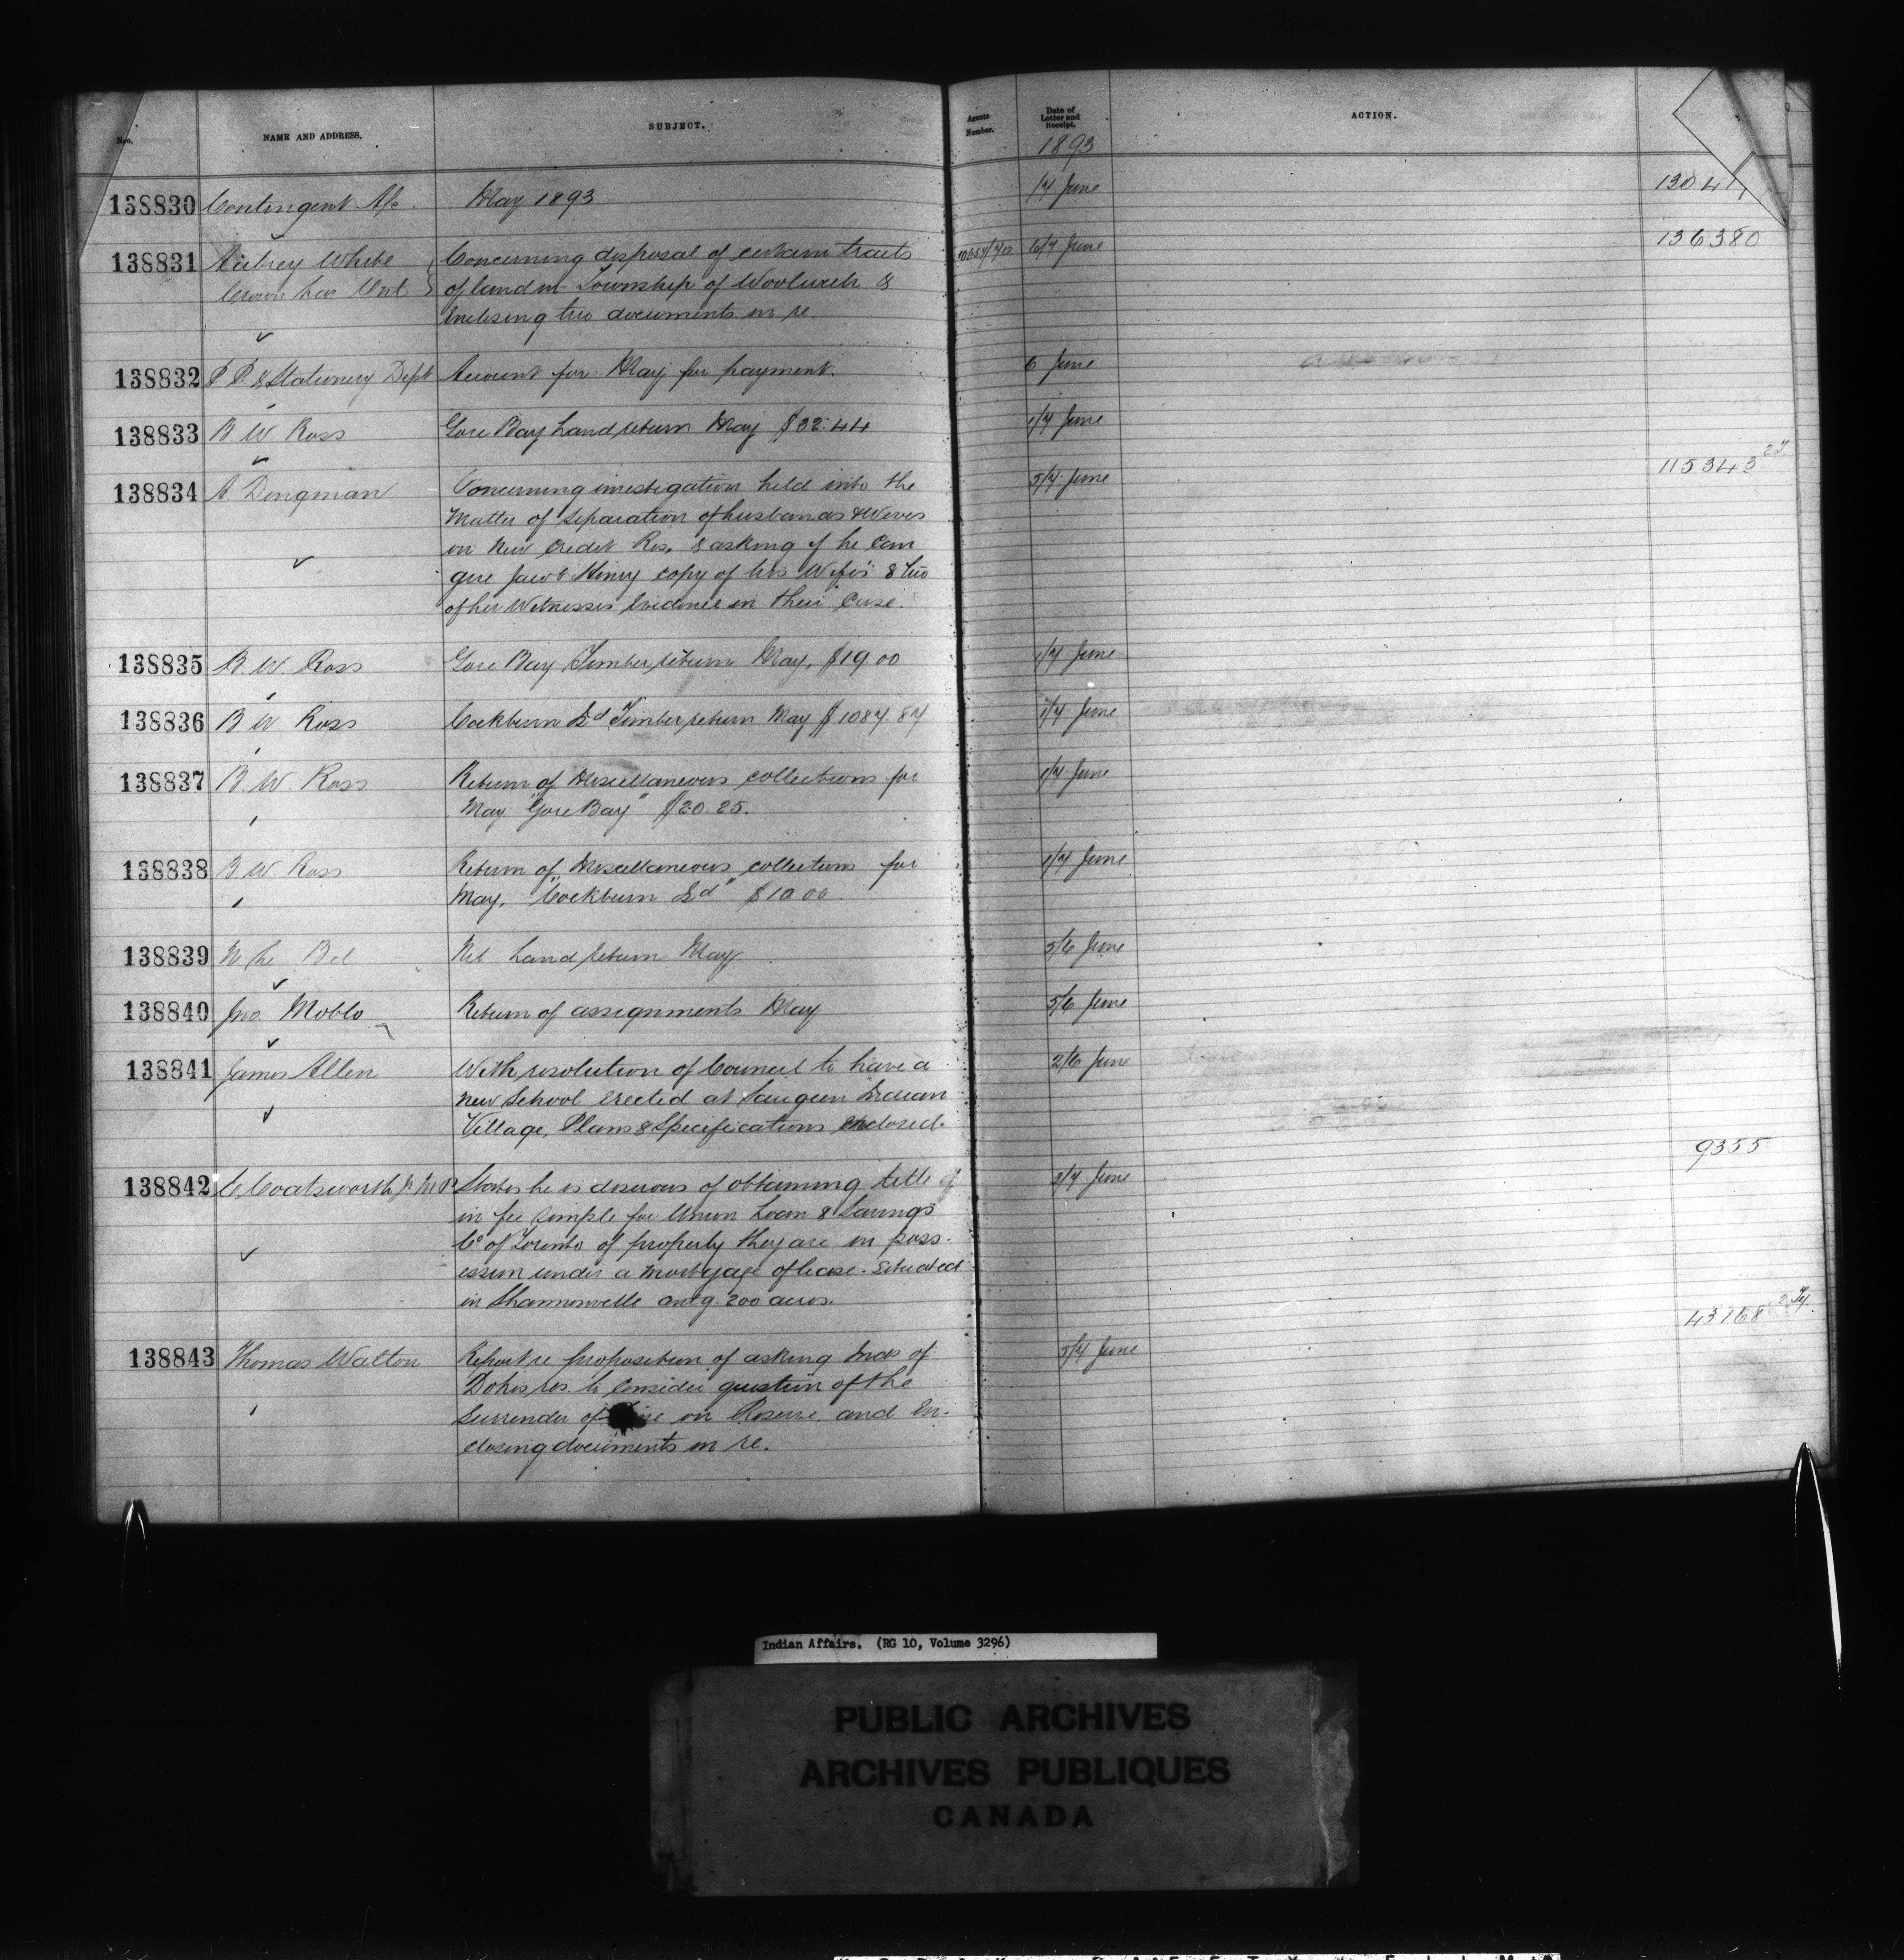 Nro.
NAME AND ADDRESS.
SUBJECT.
Agents Number.
Date of Letter and Receipt.
ACTION.
1893
138830 Contingent A/c. May 1893 1/7 June
138831 Aubrey White Concerning disposal of certain tracts 6/7 June 136380
Crown Ont of land in Township of Woolwich &
Enclosing two documents in re.
138832 P. P. & Stationery Dept Account for May for payment. 6 June
138833 B W Ross Gore Bay Land return May $32.44 1/7 June
138834 A Dingman Concerning investigation held into the 5/7 June 115343
Matter of Separation of husbands & Wives
on New Credit Res. & asking if he can
give Jacob Henry copy of his Wife's & two
of her Witnesses Evidence in their Case.
138835 B. W. Ross Gore Bay Timber return May, $19.00 1/7 June
138836 B W Ross Cockburn Isd Timber return May $1087.87 1/7 June
138837 B. W. Ross Return of Miscellaneous collections for 1/7 June
May "Gore Bay" $20.25.
138838 B W Ross Return of Miscellaneous collections for 1/7 June
May, "Cockburn Isd" $10.00
138839 Nil Land return May 5/6 June
138840 Jno Moblo Return of assignments May 5/6 June
138841 James Allen With resolution of Council to have a 2/6 June
new School Erected at Saugeen Indian
Village, Plans & Specifications enclosed.
9355
138842 Coatsworth Jr M P States he is desirous of obtaining title of 3/7 June
in fee simple for Union Loan & Savings
Co of Toronto of property they are in poss-
ession under a Mortgage of lease. Situated
in Shannonville 200 acres.
43168
138843 Thomas Walton Report re proposition of asking Inds of 5/7 June
Dokis res. to consider question of the
Surrender of on Reserve and En-
closing documents in re.
Indian Affairs. (RG 10, Volume 3296)
PUBLIC ARCHIVES
ARCHIVES PUBLIQUES
CANADA